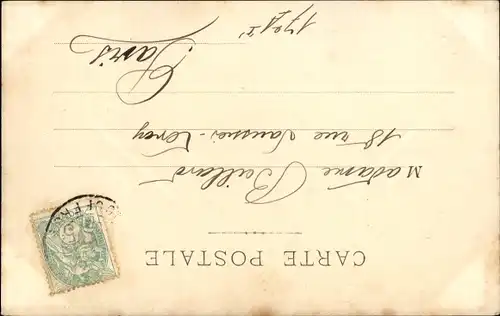 CARTE POSTALE
Madame Baillard
18 rue Saussier-Leroy
Paris
17 arr<sup>t</sup>